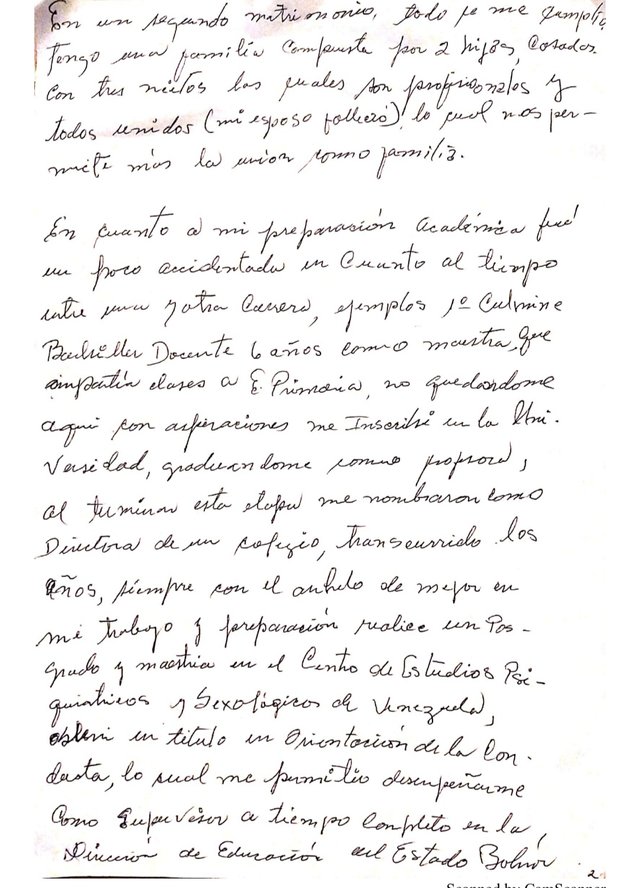 En un segundo matrimonio, todo se me cumplió,
tengo una familia compuesta por 2 hijas, Casadas
con tres nietos las cuales son profesionales y
todos unidos (mi esposo falleció), lo cual nos per-
mite más la unión como familia.
En cuanto a mi preparación Académica fué
un poco accidentada en Cuanto al tiempo
entre una y otra Carrera, ejemplos 1º Culmine
Bachiller Docente 6 años como maestra, que
impartía clases a E. Primaria, no quedandome
aqui con aspiraciones me Inscribí en la Uni-
versidad, graduandome como profesora,
al terminar esta etapa me nombraron como
Directora de un colegio, transcurrido los
años, siempre con el anhelo de mejor en
mi trabajo y preparación realice un Pos-
grado y maestria en el Centro de Estudios Psi-
quiatricos y Sexológicos de Venezuela,
obtuve un titulo en Orientación de la Con-
ducta, lo cual me permitio desempeñarme
Como Supervisor a tiempo completo en la,
Dirección de Educación del Estado Bolívar
2
Scanned by CamScanner